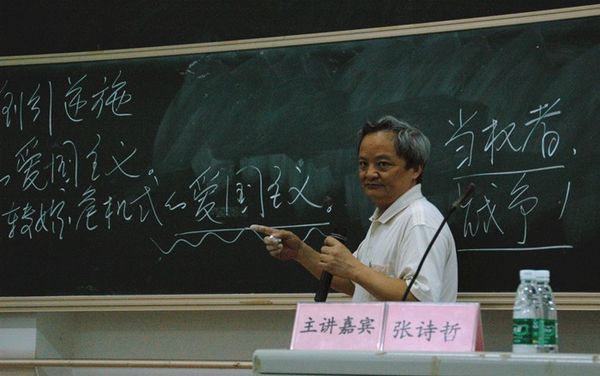 倒行逆施
的爱国主义。
转嫁危机式的爱国主义。
当权者，
战争！
主讲嘉宾
张诗哲